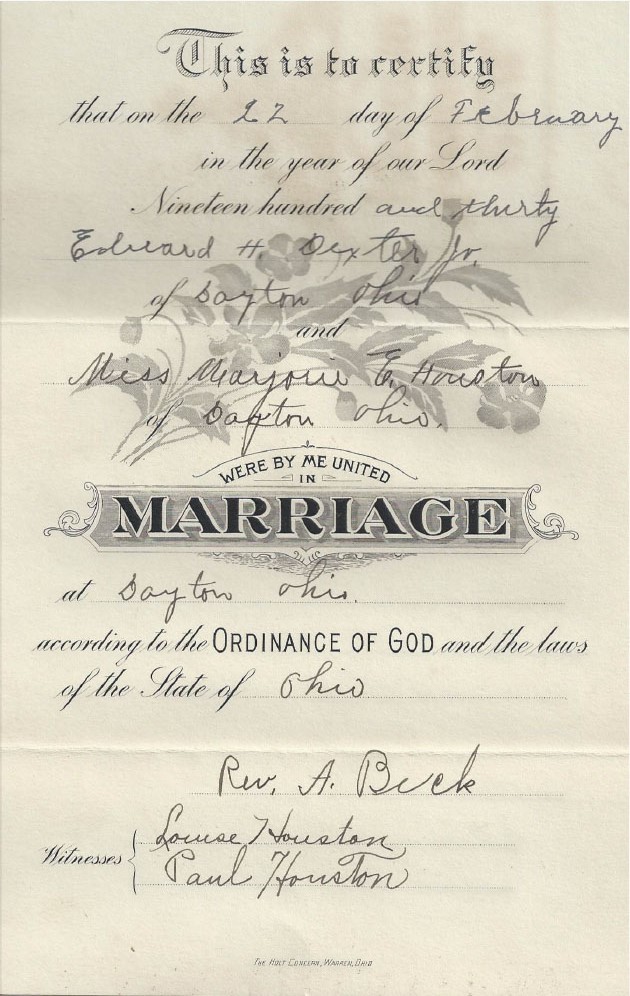 This is to certify
that on the 22 day of February
in the year of our Lord
Nineteen hundred and thirty
Edward H. Dexter Jr.
of Dayton Ohio
and
Miss Marjorie E. Houston
of Dayton Ohio.
WERE BY ME UNITED
IN
MARRIAGE
at Dayton Ohio.
according to the ORDINANCE OF GOD and the laws
of the State of Ohio
Rev. A. Buck
Louise Houston
Witnesses
Paul Houston
THE HOLT CONCERN, WARREN, OHIO